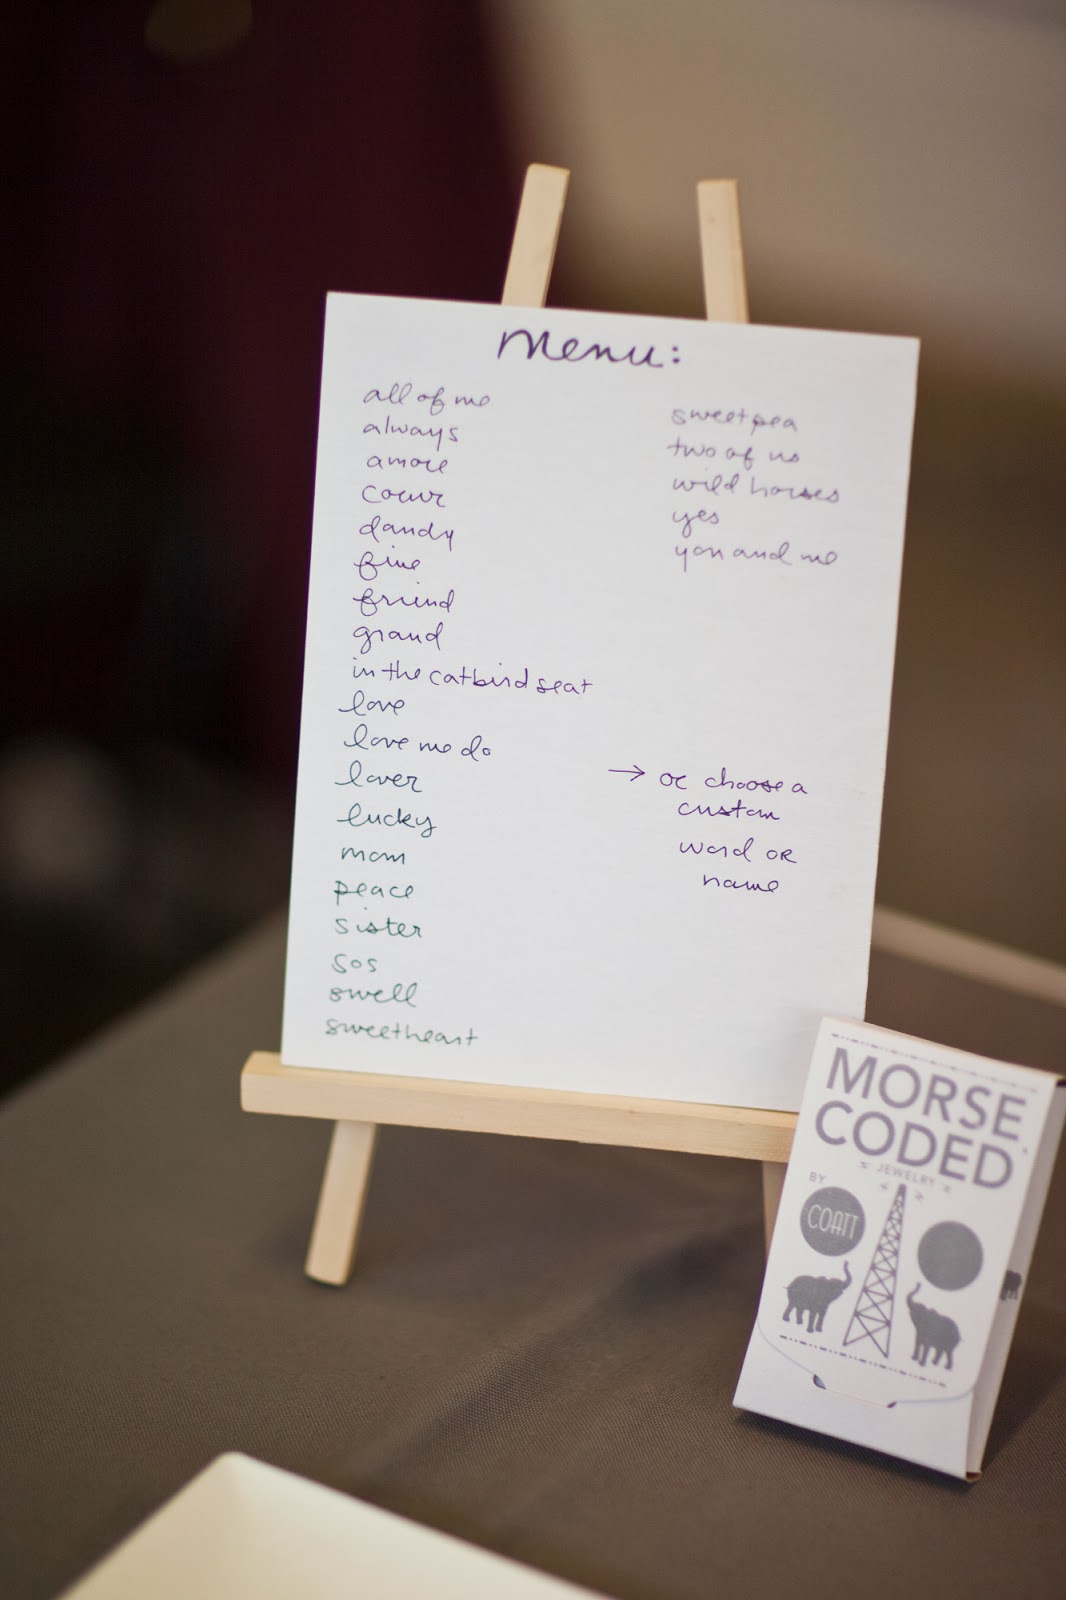 menu:
all of me
always
amore
coeur
dandy
fine
friend
grand
in the catbird seat
love
love me do
lover
lucky
mom
peace
sister
sos
swell
sweetheart
sweetpea
two of us
wild horses
yes
you and me
→ or choose a
custom
word or
name
MORSE
CODED
JEWELRY
BY
COATT